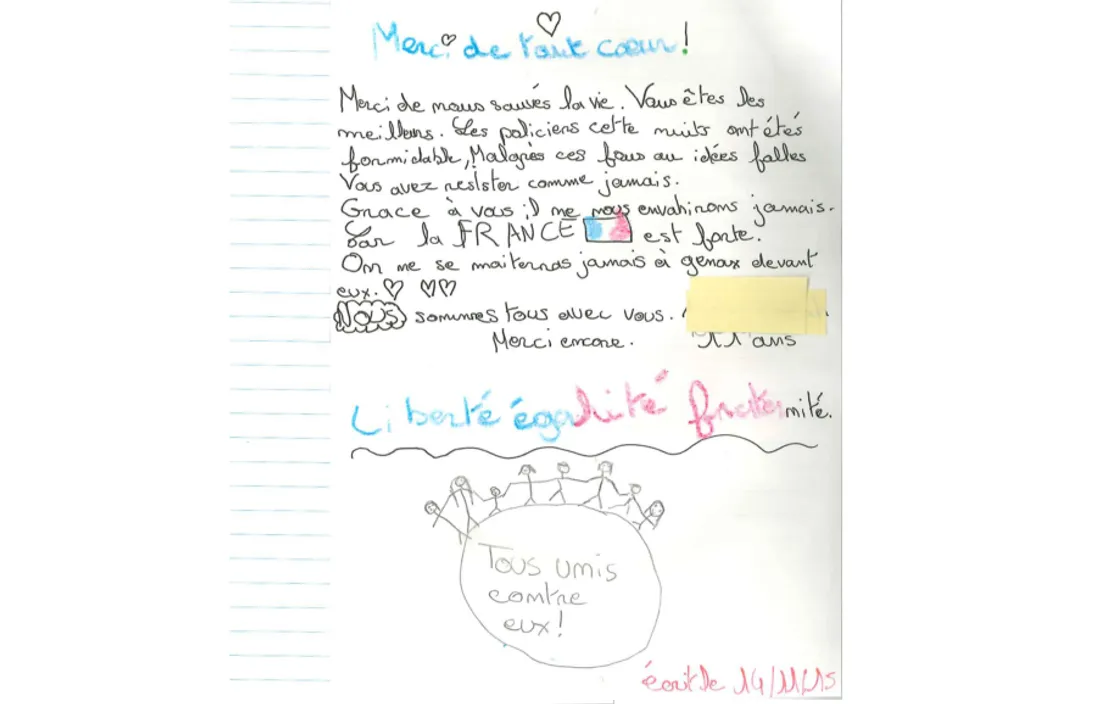 Merci de tout cœur!
Merci de nous sauvés la vie. Vous êtes les
meilleurs. Les policiers cette nuits ont étés
formidable, Malgrès ces fous au idées falles
Vous avez resister comme jamais.
Grace à vous il ne nous envahirons jamais.
Car la FRANCE est forte.
On ne se maiternas jamais à genoux devant
eux.
Nous sommes tous avec vous.
Merci encore. 11 ans
Liberté égalité fraternité.
Tous unis
contre
eux!
écrit le 14/11/15